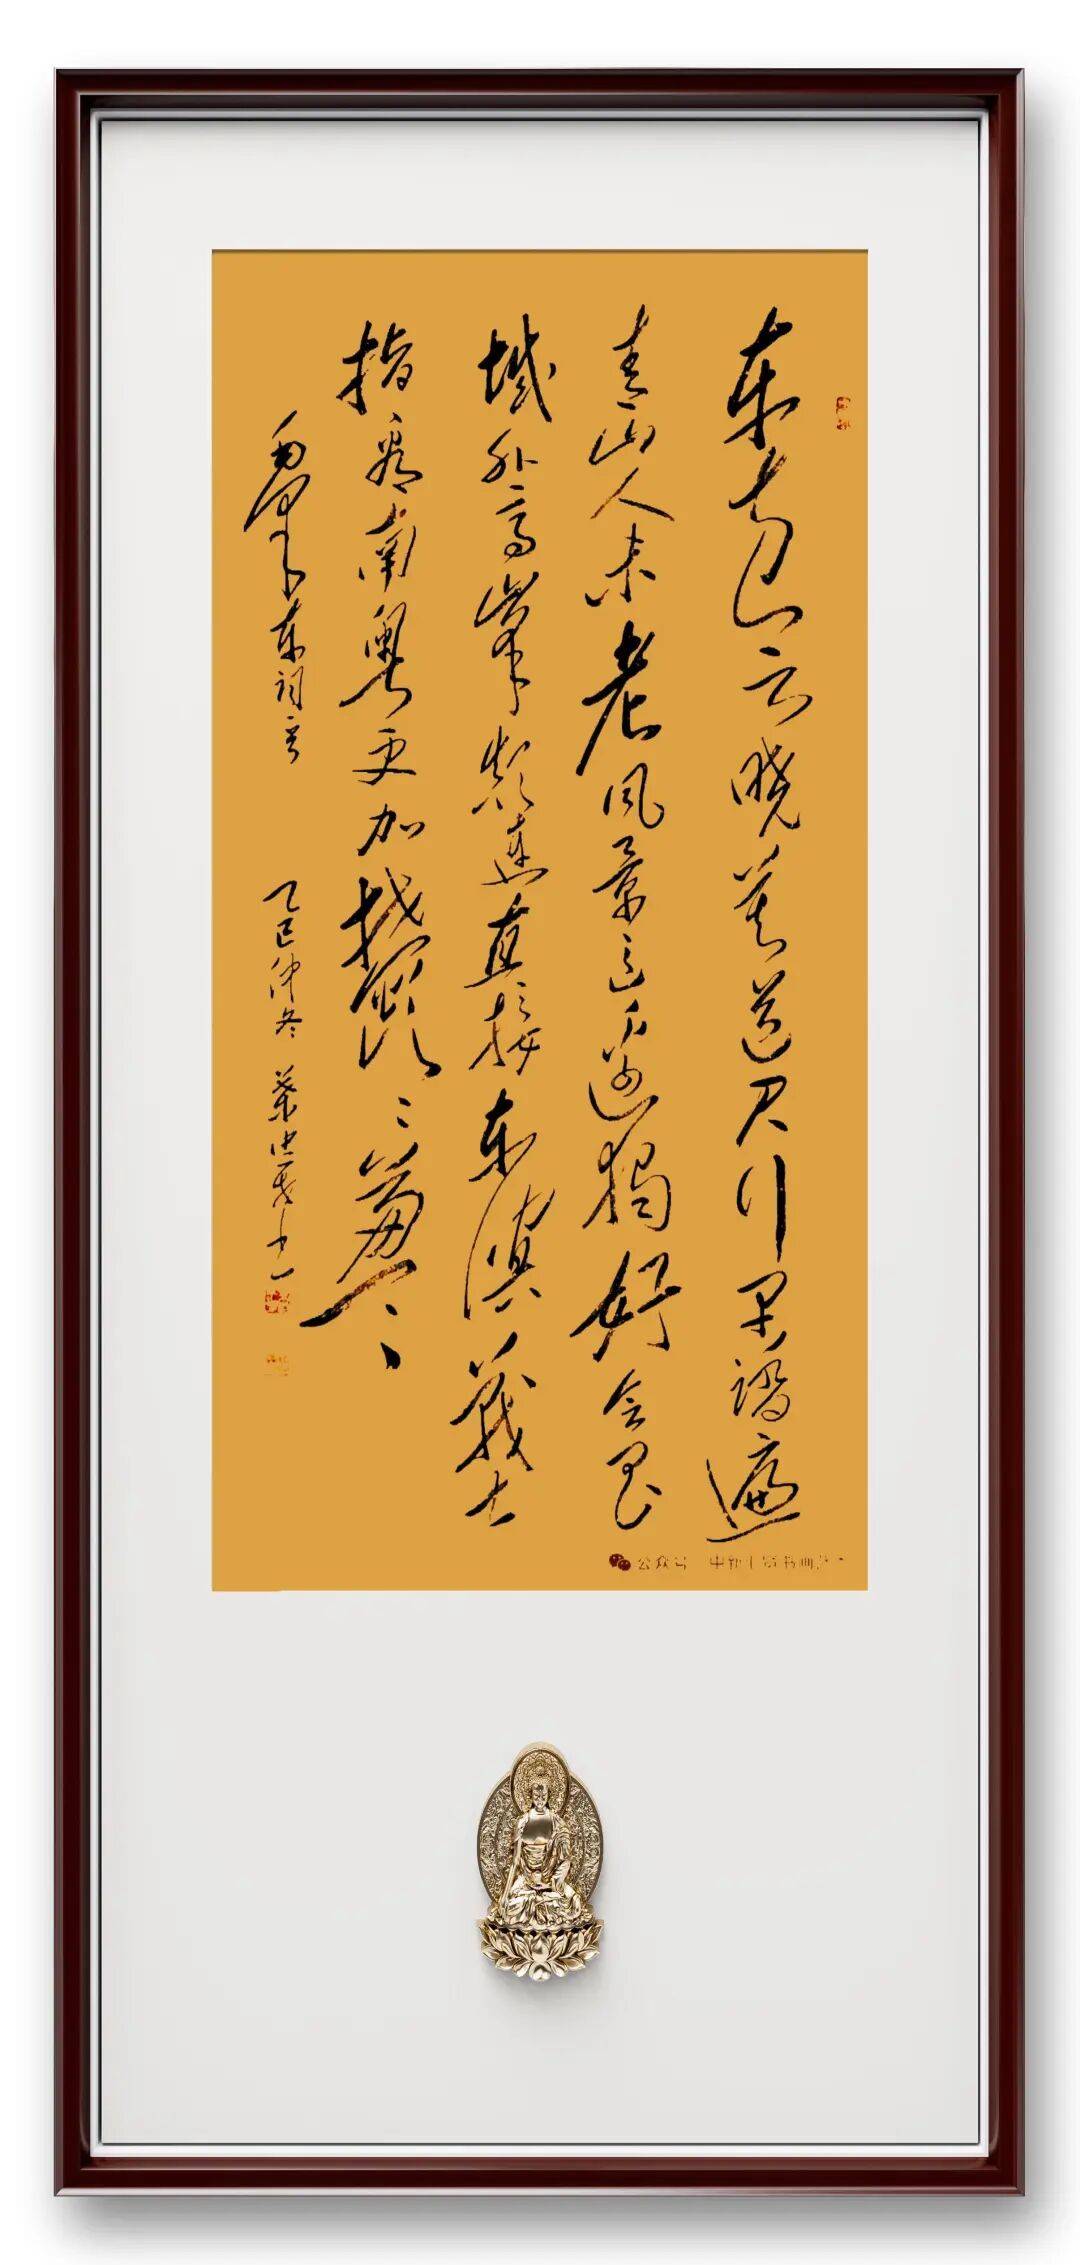 东方欲晓莫道君行早踏遍
青山人未老风景这边独好会昌
城外高峰颠连直接东溟战士
指看南粤更加郁〻葱〻
毛泽东词
乙巳仲冬 书
公众号